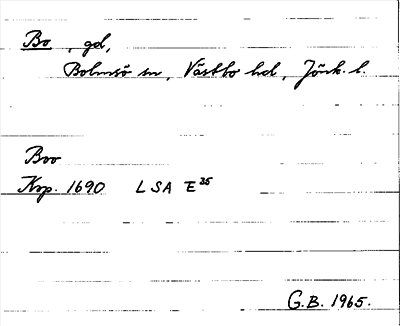 Bo, gd,
Bolmsö sn, Västbo hd, Jönk. l.
Boo
Kop. 1690 LSA E 25
G.B. 1965.